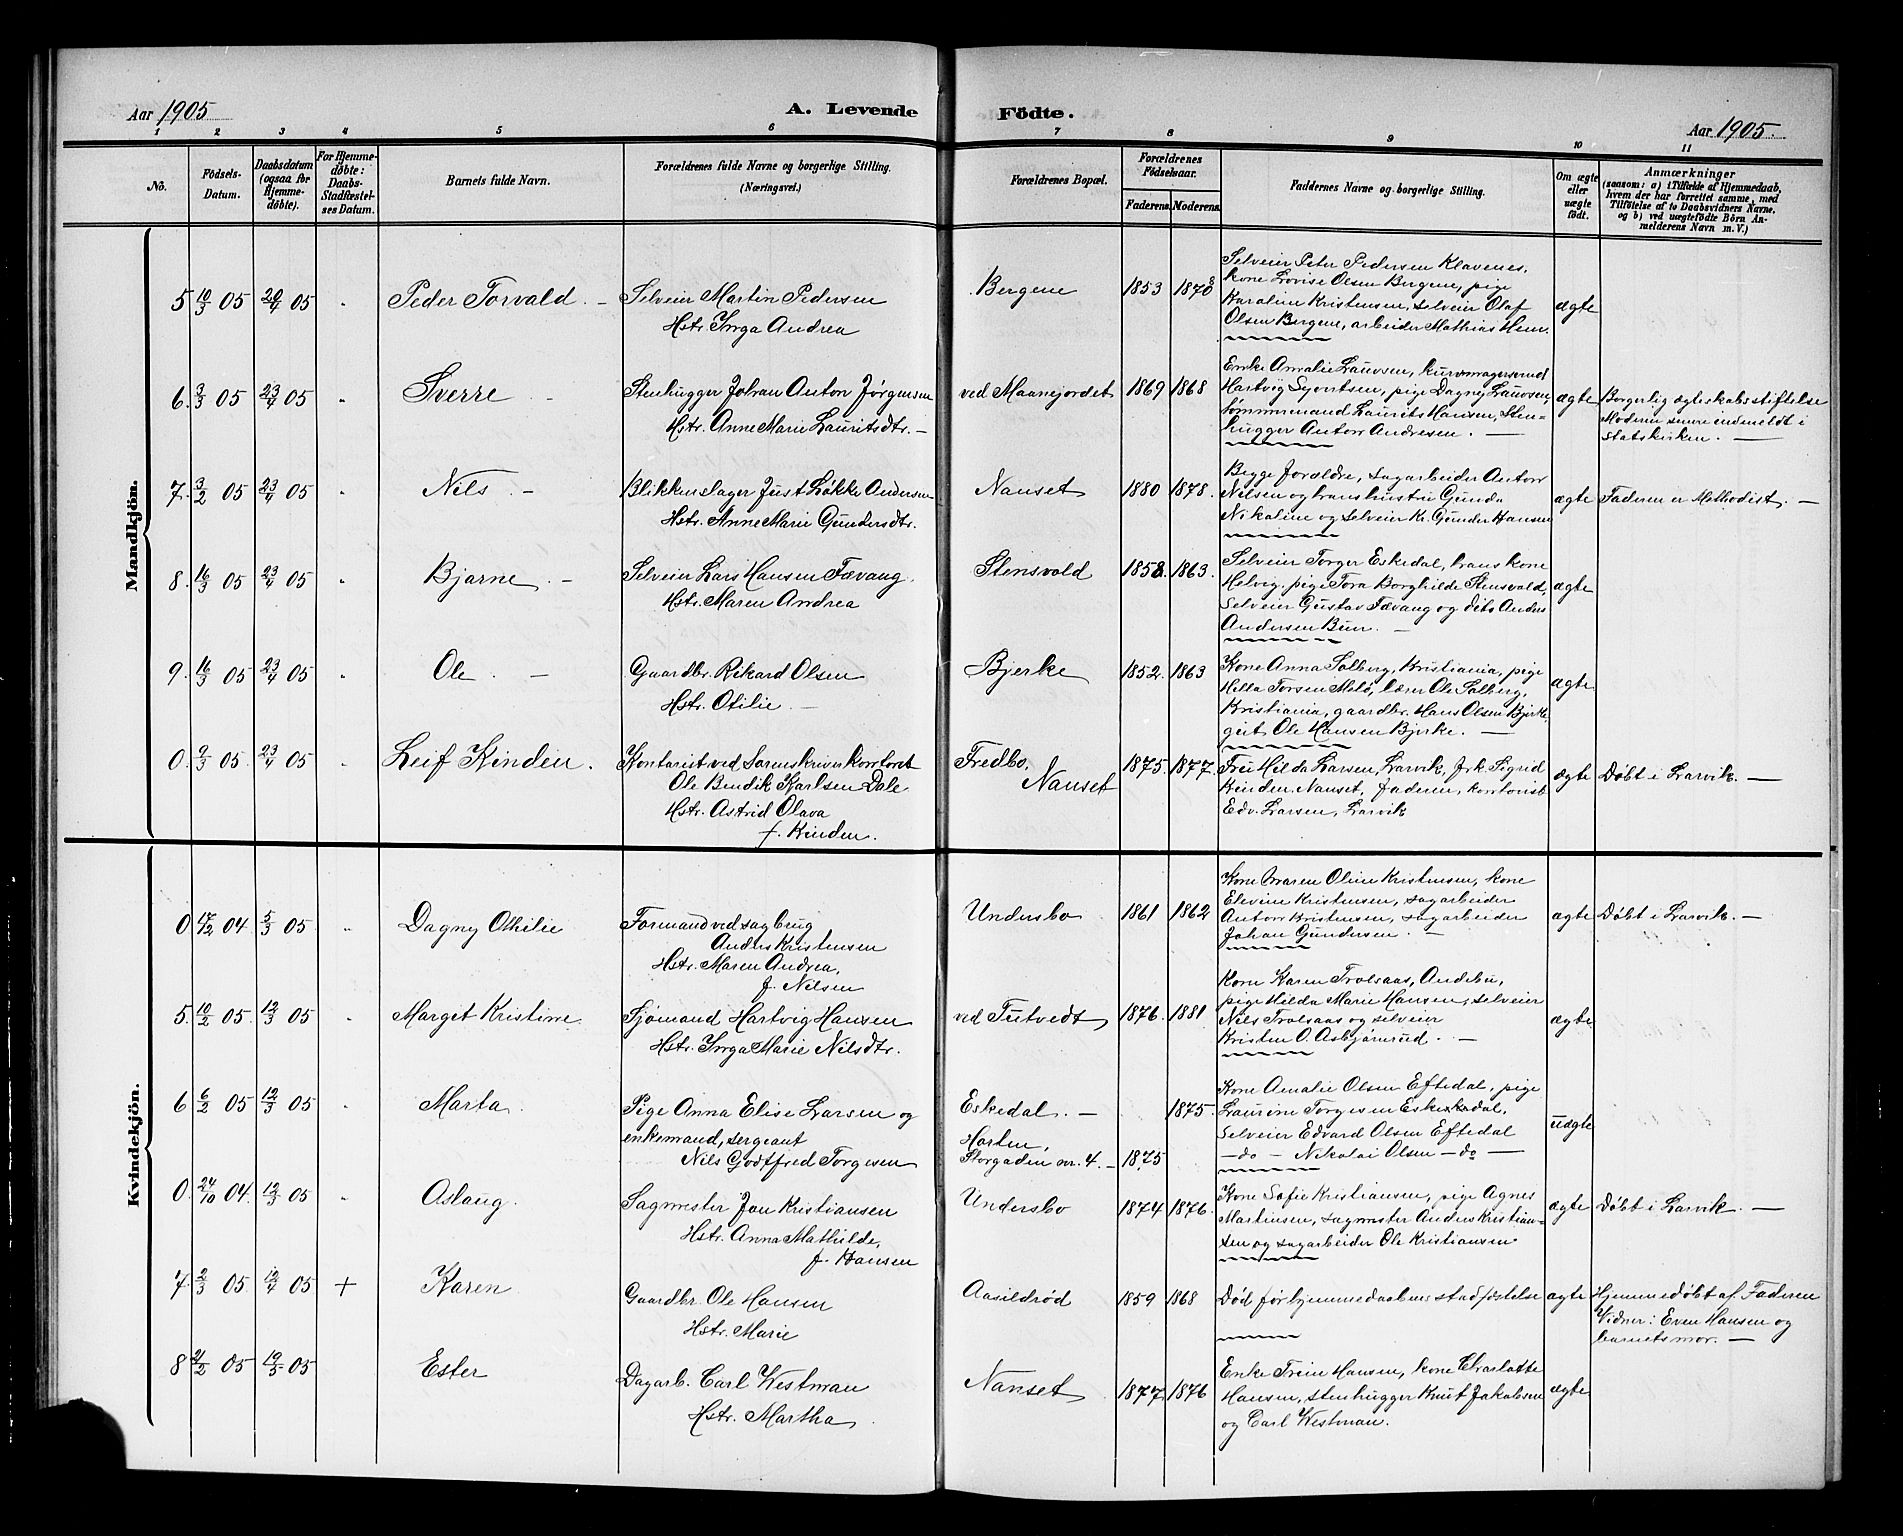 Aar 1905
A. Levende
Födte.
Aar 1905.
1 2 3 4 5 6 7 8 9 10 11
No.
Födsels-
Datum.
Daabsdatum
(ogsaa for
Hjemme-
døbte).
For Hjemme-
døbte:
Daabs-
Stadfæstel-
ses Datum.
Barnets fulde Navn.
Forældrenes fulde Navne og borgerlige Stilling.
(Næringsvei.)
Forældrenes Bopæl.
Forældrenes
Födselsaar.
Faderens. Moderens.
Faddernes Navne og borgerlige Stilling.
Om ægte
eller
uægte
födt.
Anmærkninger
(saasom: a) i Tilfælde af Hjemmedaab,
hvem der har forrettet samme, med
Tilføielse af to Daabsvidners Navne,
og b) ved uægtefödte Börn An-
melderens Navn m. V.)
Mandkjön.
5 10/3 05 20/4 05 " Peder Torvald. –
Selveier Martin Pedersen
Hstr. Inga Andrea
Bergene 1853 1870
Selveier Peter Pedersen Klavenes,
kone Lovise Olsen Bergene, pige
Karaline Kristensen, selveier Olaf
Olsen Bergene, arbeider Mathias Hem.
ægte
6. 3/3 05 23/4 05 " Sverre –
Stenhugger Johan Anton Jørgensen
Hstr. Anne Marie Lauritsdtr. –
ved Maanejordet 1869 1868
Enke Amalie Lauvsen, kurvmagersvend
Hartvig Syvertsen, pige Dagny Lauvsen
tømmermand Laurits Hansen, Sten-
hugger Anton Andresen. –
ægte
Borgerlig ægteskabsstiftelse
Moderen senere indmeldt i
statskirken. –
7. 3/2 05 23/4 05 " Nils. –
Blikkenslager Just Løkke Andersen
Hstr. Anne Marie Gundersdtr.
Nanset 1880 1878.
Begge forældre, sagarbeider Anton
Nilsen og hans hustru Gunda
Nikaline og selveier Kr. Gunder Hansen
ægte
Faderen er Methodist. –
8. 16/3 05 23/4 05 " Bjarne. –
Selveier Lars Hansen Fævang.
Hstr. Maren Andrea
Stensvold 1858. 1863.
Selveier Torger Eskedal, hans kone
Helvig, pige Tora Borghilde Stensvold,
selveier Gustav Fævang og dito Anders
Andersen Bun. –
ægte
9. 16/3 05 23/4 05 " Ole. –
Gaardbr. Rikard Olsen
Hstr. Otilie. –
Bjerke 1852. 1863
Kone Anna Solberg, Kristiania, pige
Hilla Torsen Molø, lærer Ole Solberg,
Kristiania, gaardbr. Hans Olsen Bjerke,
gut Ole Hansen Bjerke. –
ægte
0. 9/3 05. 23/4 05 " Leif Kinden.
Kontorist ved Sorenskriverkontoret
Ole Bendik Karlsen Dale.
Hstr. Astrid Olava
f. Kinden.
Fredbo,
Nanset 1875. 1877.
Fru Hilda Larsen, Larvik, frk. Sigrid
Kinden, Nanset, faderen, kontorist
Edv. Larsen, Larvik
ægte
Døbt i Larvik. –
Kvindekjön.
0 17/12 04. 5/3 05 " Dagny Othilie
Formand ved sagbrug
Anders Kristensen
Hstr. Maren Andrea,
f. Nilsen
Undersbo 1861 1862
Kone Maren Oline Kristensen, kone
Elevine Kristensen, sagarbeider
Anton Kristensen, sagarbeider
Johan Gundersen. –
ægte
Døbt i Larvik. –
5. 10/2 05. 12/3 05 " Marget Kristine.
Sjømand Hartvig Hansen
Hstr. Inga Marie Nilsdtr.
ved Tutvedt 1876. 1881
Kone Karen Trolsaas, Andebu,
pige Hilda Marie Hansen, selveier
Nils Trolsaas og selveier
Kristen O. Asbjørnrud. –
ægte
6 6/2 05 12/3 05 " Marta.
Pige Anna Elise Larsen og
enkemand, sergeant
Nils Godtfred Torgesen
Eskedal. – 1875.
Horten,
Storgaden nr. 4. – 1875
Kone Amalie Olsen Eftedal, pige
Laurine Torgesen Eskedal,
selveier Edvard Olsen Eftedal
– do – Nikolai Olsen – do –
uægte
0. 24/10 04. 12/3 05 " Aslaug.
Sagmester Jan Kristiansen
Hstr. Anna Mathilde,
f. Hansen
Undersbo 1874 1876.
Kone Sofie Kristiansen, pige Agnes
Martinsen, sagmester Anders Kristian-
sen og sagarbeider Ole Kristiansen.
ægte
Døbt i Larvik. –
7. 2/3 05. 12/4 05 + Karen
Gaardbr. Ole Hansen
Hstr. Marie
Aasildrød 1859 1868
Død før hjemmedaabens stadfæstelse
ægte
Hjemmedøbt af Faderen
Vidner: Even Hansen og
barnets mor. –
8 2/2 05 19/3 05 Ester
Dagarb. Carl Westman
Hstr. Martha.
Nanset 1877 1876
Enke Trine Hansen, kone Charlotte
Hansen, stenhugger Knut Jakobsen
og Carl Westman.
ægte